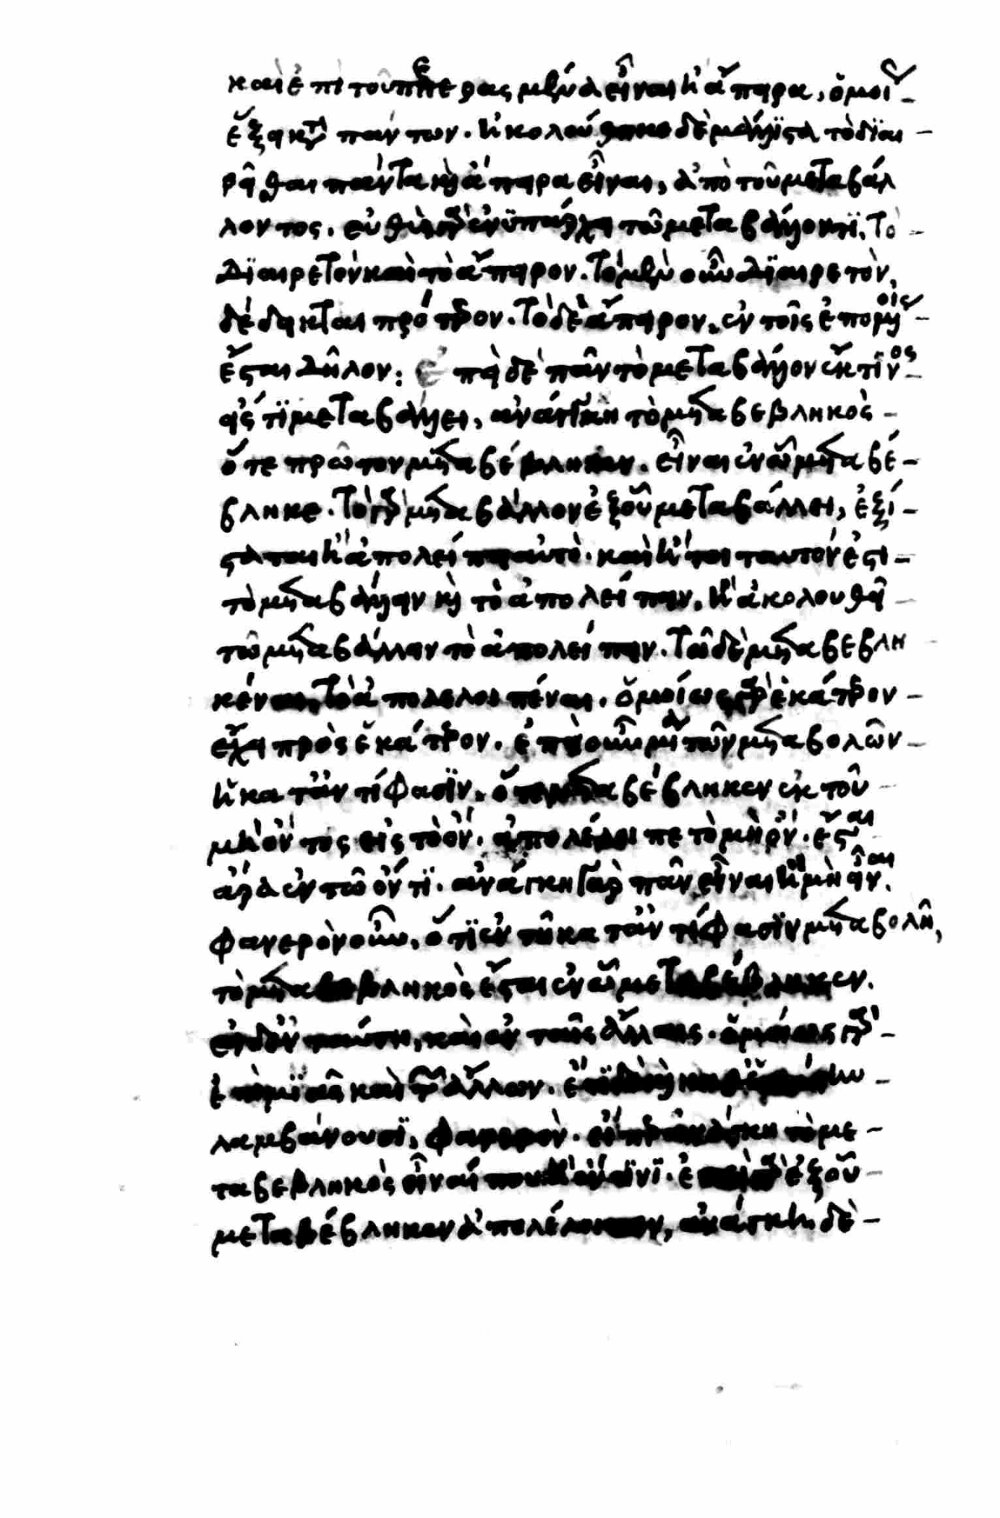 καὶ ἐπὶ τοῦ πεπερασμένα εἶναι ἢ ἄπειρα, ὁμοίως
ἕξει κατὰ πάντων. ἠκολούθηκε δὲ μάλιστα τὸ διαι
ρεῖσθαι πάντα καὶ ἄπειρα εἶναι, ἀπὸ τοῦ μεταβάλ
λοντος. εὐθὺς γὰρ ἐνϋπάρχει τῶ μεταβάλλοντι, τὸ
διαιρετὸν καὶ τὸ ἄπειρον. τὸ μὲν οὖν διαιρετὸν,
δέδεικται πρότερον. τὸ δὲ ἄπειρον, ἐν τοῖς ἑπομένοις
ἔσται δῆλον: ἐπεὶ δὲ πᾶν τὸ μεταβάλλον ἔκ τινος
εἴς τι μεταβάλλει, ἀνάγκη τὸ μεταβεβληκὸς
ὅτε πρῶτον μεταβέβληκεν, εἶναι ἐν ὧ μεταβέ
βληκε. τὸ γὰρ μεταβάλλον ἐξ οὗ μεταβάλλει, ἐξί
σταται ἢ ἀπολείπει αὐτό. καὶ ἤτοι ταυτόν ἐστι
τὸ μεταβάλλειν καὶ τὸ ἀπολείπειν, ἢ ἀκολουθεῖ
τῶ μεταβάλλειν τὸ ἀπολείπειν. τῶ δὲ μεταβεβλη
κέναι, τὸ ἀπολελοιπέναι. ὁμοίως γὰρ ἑκάτερον
ἔχει πρὸς ἑκάτερον. ἐπεὶ οὖν μία τῶν μεταβολῶν
ἡ κατ' ἀντίφασιν, ὅτε μεταβέβληκεν ἐκ τοῦ
μὴ ὄντος εἰς τὸ ὂν, ἀπολέλοιπε τὸ μὴ ὄν. ἔσται
ἄρα ἐν τῶ ὄντι. ἀνάγκη γὰρ πᾶν εἶναι ἢ μὴ εἶναι.
φανερὸν οὖν, ὅτι ἐν τῆ κατ' ἀντίφασιν μεταβολῆ,
τὸ μεταβεβληκὸς ἔσται ἐν ὧ μεταβέβληκεν.
εἰ δ' ἐν ταύτη, καὶ ἐν ταῖς ἄλλαις. ὁμοίως γὰρ
ἐπὶ μιᾶς καὶ τῶν ἄλλων. ἔτι δὲ καὶ καθ' ἑκάστην
λαμβάνουσι, φανερόν. εἴπερ ἀνάγκη τὸ με
ταβεβληκὸς εἶναί που ἢ ἔν τινι. ἐπεὶ γὰρ ἐξ οὗ
μεταβέβληκεν ἀπολέλοιπεν, ἀνάγκη δὲ